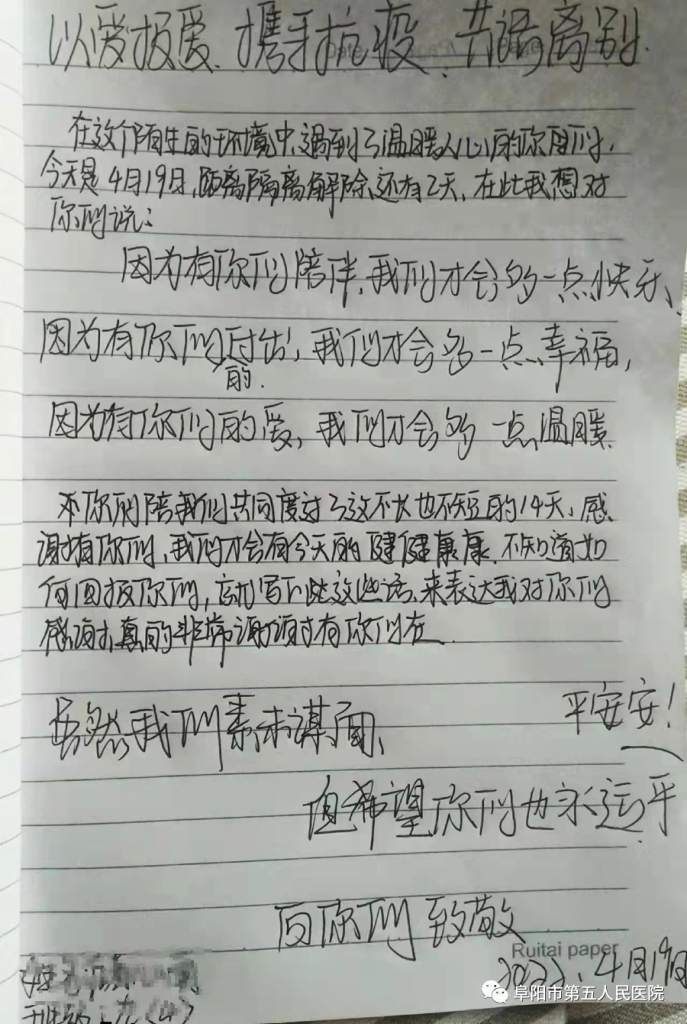 以爱报爱、携手抗疫、共话离别.
在这个陌生的环境中,遇到了温暖人心的你们,
今天是4月19日,距离隔离解除,还有2天,在此我想对
你们说:
因为有你们陪伴,我们才会多一点快乐、
因为有你们付出,我们才会多一点幸福,
的.
因为有你们的爱,我们才会多一点温暖.
你们陪我们共同度过了这不长也不短的14天,感
谢有你们,我们才会有今天的健健康康.不知道如
何回报你们,写下这些话,来表达我对你们
感谢,真的非常谢谢有你们在.
虽然我们素未谋面、
平安安!
但希望你们也永远平
向你们致敬
Ruitai paper
2022.4月19日
阜阳市第五人民医院